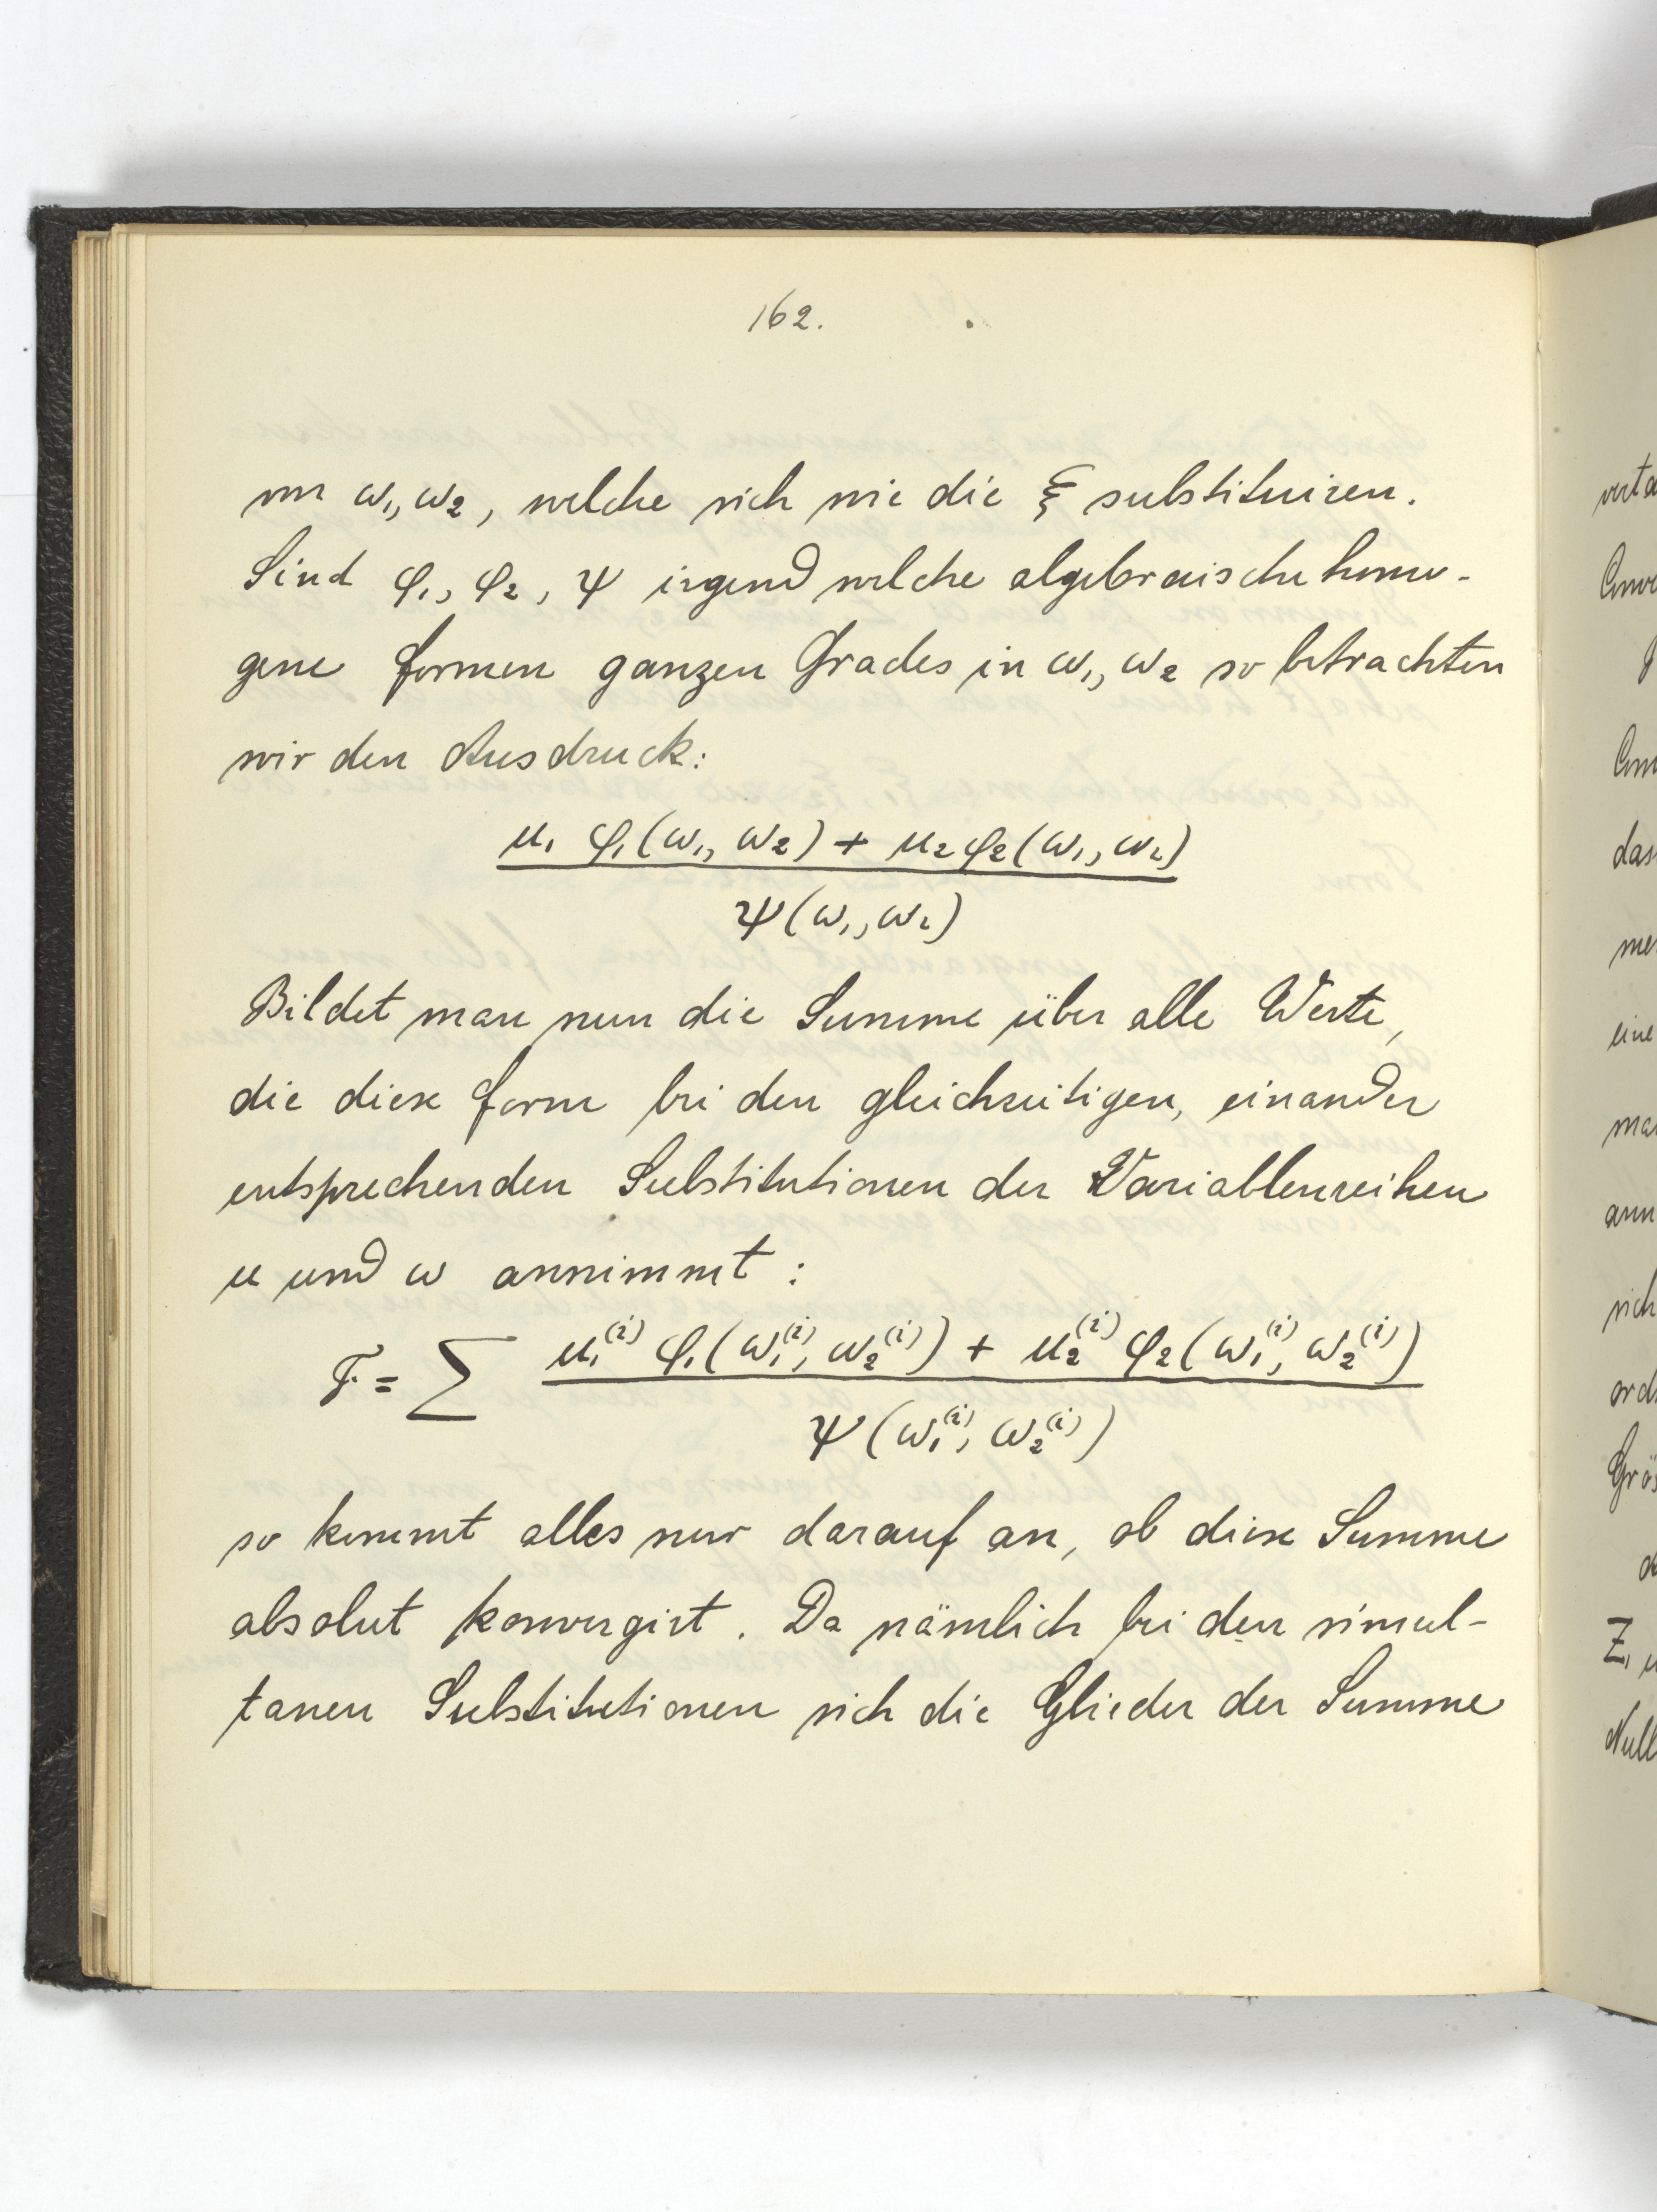 162.
von ω₁, ω₂, welche sich wie die ξ substituiren.
Sind φ₁, φ₂, ψ irgend welche algebraische homo-
gene Formen ganzen Grades in ω₁, ω₂ so betrachten
wir den Ausdruck:
u₁ φ₁(ω₁, ω₂) + u₂ φ₂(ω₁, ω₂)
ψ(ω₁, ω₂)
Bildet man nun die Summe über alle Werte,
die diese Form bei den gleichzeitigen, einander
entsprechenden Substitutionen der Variablenreihen
u und ω annimmt:
F = ∑ u₁⁽ⁱ⁾ φ₁(ω₁⁽ⁱ⁾, ω₂⁽ⁱ⁾) + u₂⁽ⁱ⁾ φ₂(ω₁⁽ⁱ⁾, ω₂⁽ⁱ⁾)
ψ(ω₁⁽ⁱ⁾, ω₂⁽ⁱ⁾)
so kommt alles nur darauf an, ob diese Summe
absolut konvergirt. Da nämlich bei den simul-
tanen Substitutionen sich die Glieder der Summe
das
eine
sich
Z₁
Null